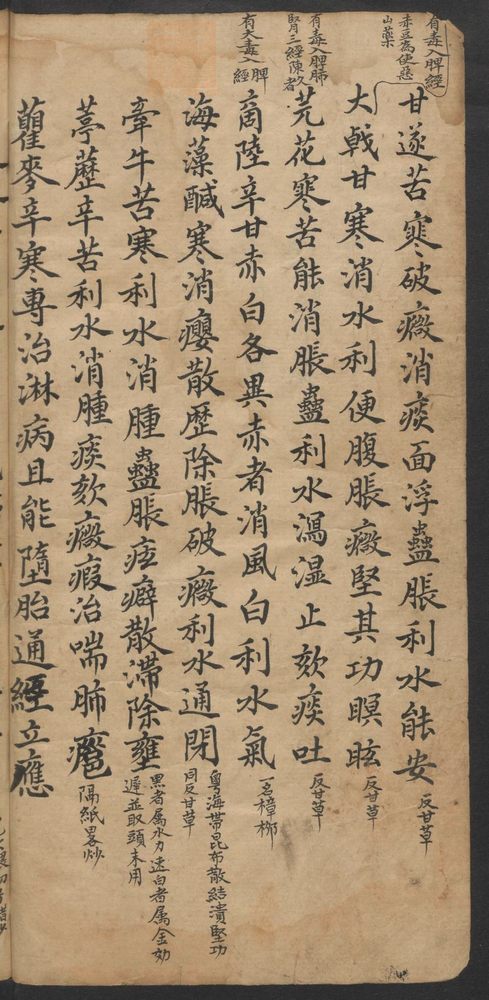 有毒入脾經
赤豆為使惡
山藥
甘遂苦寒破癥消痰面浮蠱脹利水能安 反甘草
大戟甘寒消水利便腹脹癥堅其功瞑眩 反甘草
有毒入脾肺
腎三經陳久者
芫花寒苦能消脹蠱利水瀉湿止欬痰吐 反甘草
有大毒入脾
經
商陸辛甘赤白各異赤者消風白利水氣 一名樟柳
海藻鹹寒消癭散歷除脹破癥利水通閉 粵海帶昆布散結潰堅功
同反甘草
牽牛苦寒利水消腫蠱脹痃癖散滯除壅 黑者属水力速白者属金効
遲並取頭末用
葶藶辛苦利水消腫痰欬癥瘕治喘肺癰 隔紙畧炒
瞿麥辛寒專治淋病且能墮胎通經立應